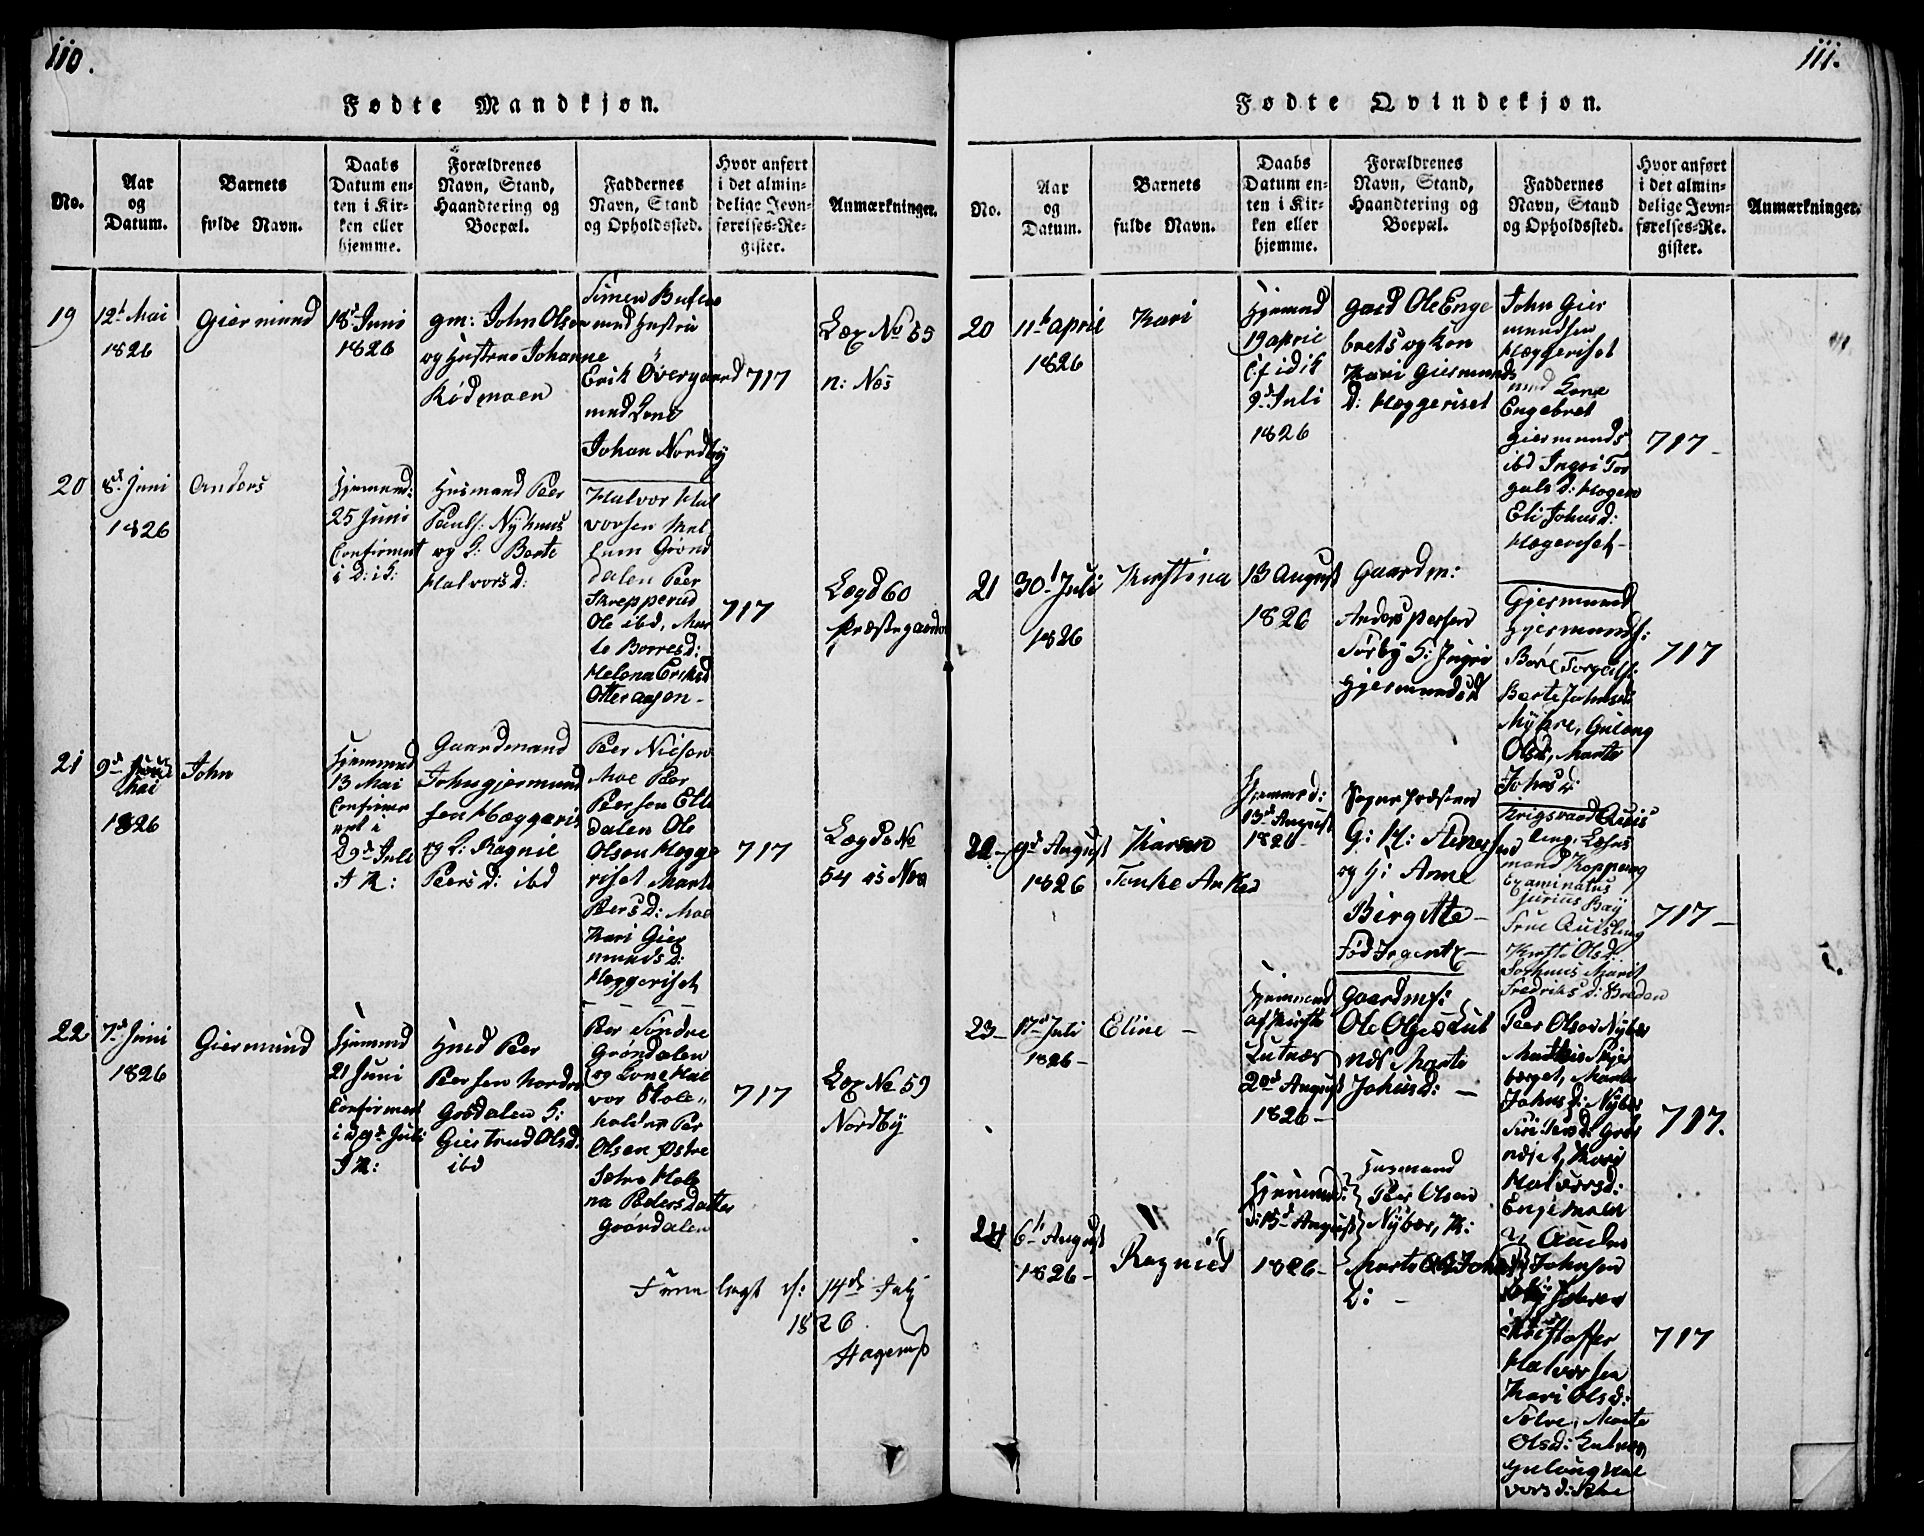 110.
Fødte Mandkjøn.
No.
Aar
og
Datum.
Barnets
fulde Navn.
Daabs
Datum en-
ten i Kir-
ken eller
hjemme.
Forældrenes
Navn, Stand,
Haandtering og
Boepæl.
Faddernes
Navn, Stand
og Opholdssted.
Hvor anført
i det almin-
delige Jevn-
førelses-Re-
gister.
Anmærkninger.
19
12t Mai
1826
Giermund
18d Juni
1826
gm: John Olsen
og Hustrue Johanne
Rödmoen
Simen
med Hustru
Erik Övergaard
med Kone
Johan Nordby
717
Læg No 55
n: Næs
20
8d Juni
1826
Anders
Hjemmed:
25 Juni
Confirmert
i D: i K:
Husmand Peer
Pauls: Nyhuus
og K: Berte
Halvorsd:
Halvor Hal
vorsen
Grönd
dalen Peer
Skrepperud
Ole ibd, Mar
te Borresd:
Helena Eriksd
Otteraasen -
717
Lægd 60
Præstegaarden
21
9d
Mai
1826
John
Hjemmed
13 Mai
Confirmer
ert i
d 9d Juli
T K:
Gaardmand
John gjermund
sen Hæggeris
og K: Ragnil
Peersd: ibd
Peer Nielsen
Moe Peer
Peersen Elle
dalen Ole
Olsen Hegge
riset Marte
Peersd: Moe
Kari Gier
mundsd:
Hæggeriset
717
Lægds No
54
22
7d Juni
1826
Giermund
Hjemmed
21 Juni
Confirmert
i d 9d Juli
T K:
Hmd Peer
Peersen Nordre
Gröndalen K:
Giertrud Olsd:
ibd
Peer Söndre
Gröndalen
og Kone Hal
vor Skole-
holder Per
Olsen Østre
Sætre Hele
na Pedersdatter
Gröndalen
717
Læg No 59
Nordby
lagt d: 14de July
1826
Hagerup
111.
Fødte Qvindekjøn.
No.
Aar
og
Datum.
Barnets
fulde Navn.
Daabs
Datum en-
ten i Kir-
ken eller
hjemme.
Forældrenes
Navn, Stand,
Haandtering og
Boepæl.
Faddernes
Navn, Stand
og Opholdssted.
Hvor anført
i det almin-
delige Jevn-
førelses-Re-
gister.
Anmærkninger.
20
11te April
1826
Kari
Hjemmed
19 April
9d Juli
1826
Gard Ole Enge
brets og Kon
Kari Giermunds
d: Hæggeriset
John Gier
mundsen
Hæggeriset
med Kone
Engebret
Giermunds
ibd Ingri Tor
galsd: Mogen
Eli Johnsd:
Hægeriset -
717 -
21
30t Juli
1826
Kirstina
13 August
1826
Gaardm:
Anders Persen
Sörby K: Ingri
Gjermundsd
Gjermund
Gjermunds:
Börre Torgals:
Berte Johnsd
Myhre, Guloug
Olsd, Marte
Johnsd:
717
22 -
9d August
1826
Karen
Tonke
Hjemmed:
13d August
1826
Sogne Præsten
G: H:
og H: Anne
Birgitte -
Fød Irgents -
Krigsraad Quis
ling, Lehns
mand Koppang
Examinatus
Jurius Bay
Frue Quisling
Kirsti Olsd:
Marit
Fredriksd: Bredon
717 -
23 -
17d Juli
1826 -
Eline -
Hjemmed
af Kirsti
Lutnæs
20d August
1826 -
Gaardm:
Ole Olsen Lut
næs Marte
Johnsd: -
Peer Olsen Nyber
Mathis Skjer
berget, Marte
Johnsd: Nyber
Siri
Kari
Halvorsd:
Engemoen
717.
24
6te August
1826 -
Ragnild
Hjemmed:
d: 15d August
1826 -
Husmand
Peer Olsen
Nyber, K:
Marte Johns
d: -
Anders
Johnsen
Kristoffer
Halvorsen
Kari Olsd:
Sølve, Marte
Olsd: Lutnæs
Guloug Hal
vorsd:
717